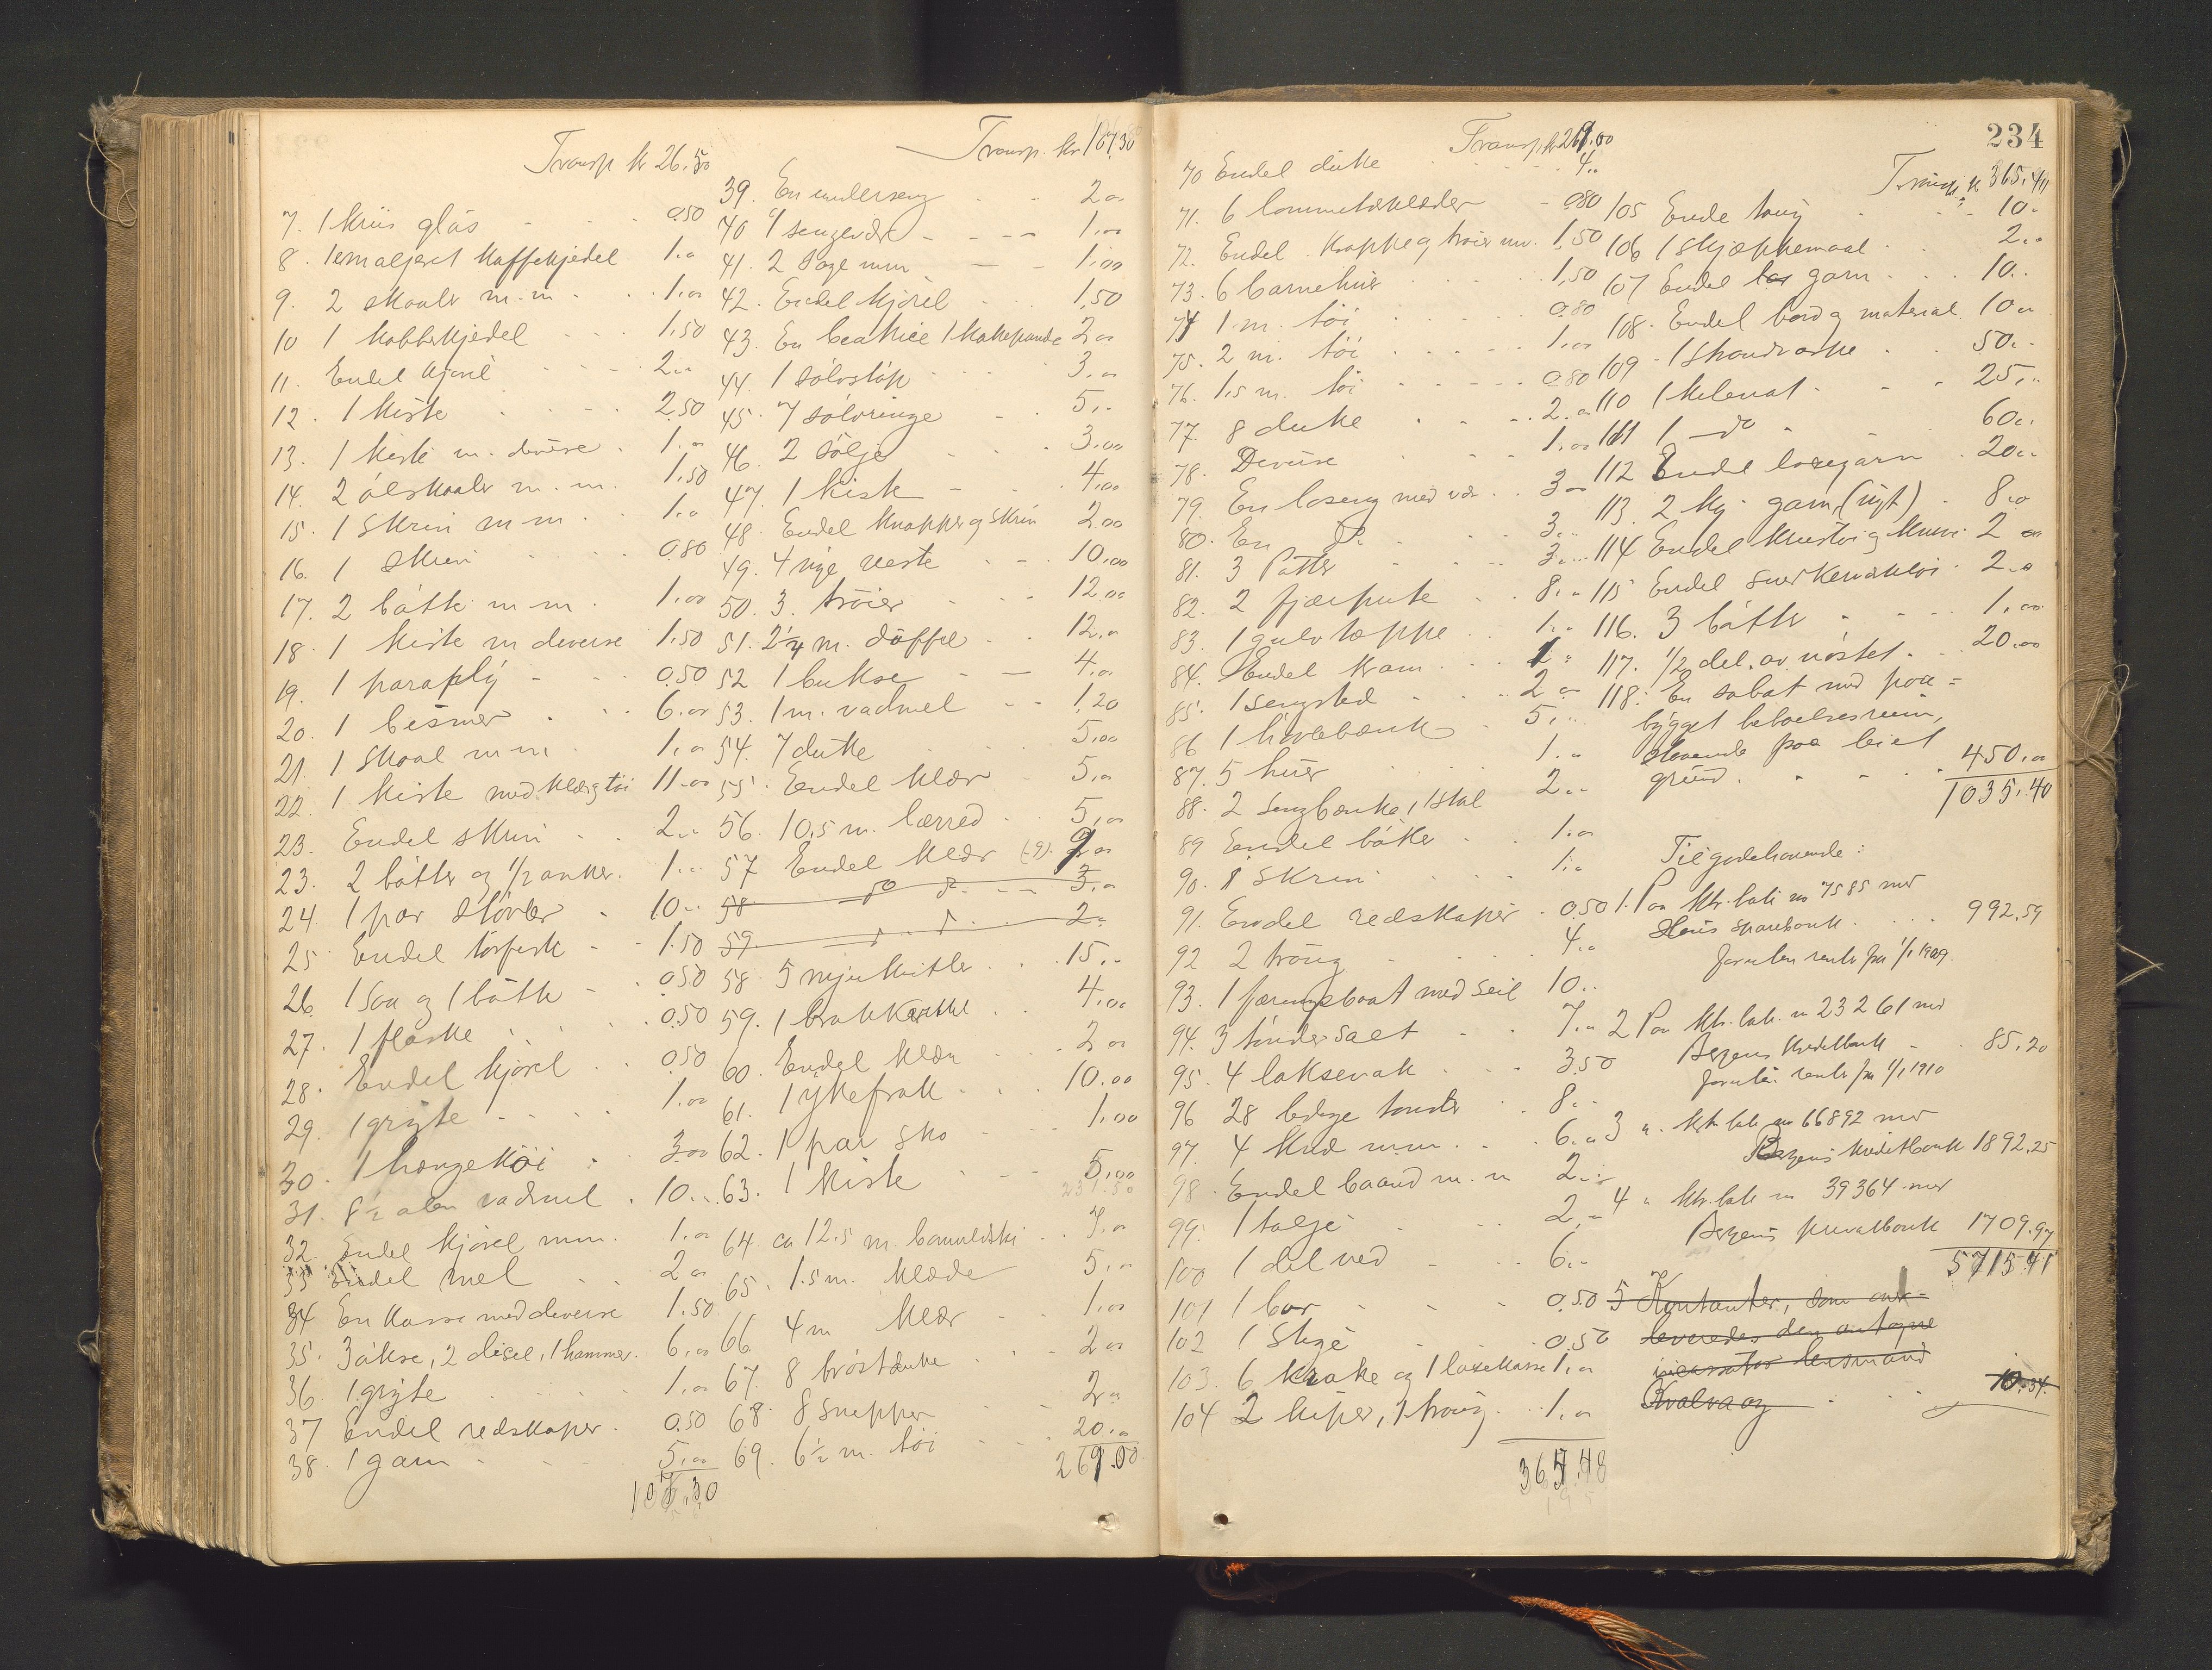 Transp kr 26.50
7. 1 krus glas - - - 0.50
8. 1 emaljeret kaffekjedel 1.00
9. 2 skaaler m.m. . . 1.00
10 1 kobberkjedel . . . 1.50
11. Endel kjørel - - - 2.00
12. 1 kiste . . . . 2.50
13. 1 kiste m. diverse . 1.00
14. 2 ølskaaler m.m. 1.50
15. 1 skrin m m . . 1.00
16. 1 skrin . . . 0.80
17. 2 bøtter m m . 1.00
18. 1 kiste m diverse 1.50
19. 1 paraply - . . 0.50
20. 1 bismer . . . 6.00
21. 1 skaal m m . . 1.00
22. 1 kiste med klær og tøi 11.00
23. Endel skrin . . 2.00
23. 2 bøtter og 1/2 anker. 1.00
24. 1 par støvler . 10.00
25. Endel tørfisk - - 1.50
26. 1 saa og 1 bøtte - . 0.50
27. 1 flaske . . . . 0.50
28. Endel kjørel . . 0.50
29. 1 gryte - . . . . 1.00
30. 1 hængekøi . 3.00
31. 8 1/2 alen vadmel . 10.00
32. Endel kjørel m.m. 1.00
33 Endel mel . . 2.00
34 En kasse med diverse 1.50
35. 3 økse, 2 disel, 1 hammer. 6.00
36. 1 gryte . . . . 1.00
37 Endel redskaper . 0.50
38. 1 garn - . . . 5.00
107.30
Transp. kr 107.30
39. En underseng . - 2.00
40 1 sengeklæ - - - - 1.00
41. 2 sage m.m. - - 1.00
42. Endel kjørel . . . 1.50
43. En 1 kakepande 2.00
44. 1 sølvstøp . . . . 3.00
45. 7 sølvringe - . 5.00
46. 2 sølje . . . . 3.00
47. 1 kiste - . . 4.00
48. Endel knapper og skrin 2.00
49. 4 nye veste . - . 10.00
50. 3. trøier - . . 12.00
51. 2 1/4 m. døffel . . 12.00
52 1 bukse - — 4.00
53. 1 m. vadmel - - 1.20
54. 7 duke . . . 5.00
55. Endel klær . 5.00
56. 10,5 m. lærred . . 5.00
57 Endel klær (9). 9.00
58 do do - - 3.00
59. 2.00
58. 5 . . 15.00
59. 1 . . 4.00
60. Endel klær . . . 2.00
61. 1 ykefrak . . . 10.00
62. 1 par sko - - - 1.00
63. 1 kiste . - - 5.00
64 ca 12.5 m. . . 7.00
65. 1.5 m. klæde 5.00
66 4 m klær - 1.00
67. 8 brøstduke . . . 2.00
68. 8 snepper . . . 2.00
69. 6 1/2 m. tøi . - . 20.00
269.00
234
Transp kr 269.00
70 Endel duke . . . 4.00
71. 6 lommetørklæder - 0.80
72. Endel kroppe og trøier m.v. 1.50
73. 6 barnehuer . . . 1.50
74 1 m. tøi . . . . . 0.80
75. 2 m. tøi . . . . . 1.00
76. 1.5 m. tøi - - - - 0.80
77. 8 duke . . . . 2.00
78. Diverse - - . 1.00
79. En loseng med vær . . 3.00
80. En Do. . . . 3.00
81. 3 Potter . . 3.00
82. 2 fjærpute . . 8.00
83. 1 gulvtæppe . . . 1.00
84. Endel kram . . . 1.00
85. 1 sengsted . . . . 2.00
86 1 høvlebænk - 5.00
87. 5 huer . . . . 1.00
88. 2 sengbænke, 1 stol 2.00
89 Endel bøker . . . 1.00
90. 1 skrin . . . . 1.00
91. Endel redskaper . 0.50
92 2 traug . . . 4.00
93. 1 færingsbaat med seil 10.00
94. 3 tønder salt . . 7.00
95. 4 laksevak . . . 3.50
96 28 ledige tønder . 8.00
97. 4 m.m. . . . 6.00
98. Endel baand m. m 2.00
99. 1 talje . . . 2.00
100 1 del ved - - 6.00
101 1 bor - - - 0.50
102 1 stige . . . . 0.50
103. 6 krake og 1 laxekasse 1.00
104 2 kiper, 1 traug. . . 1.00
365.40
Transp. kr 365.40
105 Ende taug . . . 10.00
106 1 skjæppemaal . . 2.00
107 Endel garn . . . 10.00
108. Endel bord og material. 10.00
109 - 1 . . 50.00
110 1 kilenot . . . 25.00
111 1 — do . . 60.00
112 Endel laxegarn . 20.00
113. 2 kg. garn, (nyt) . 8.00
114 Endel og 2.00
115 Endel snekkerverktøi . 2.00
116. 3 bøtter . . . . 1.00
117. 1/2 del. av nøstet . . . 20.00
118. En søbot med paa=
bygget beboelsesrum,
staaende paa leiet
grund . . . . . 450.00
1035.40
Tilgodehavende:
1. Paa ktr. bok no 7585 med
Hens sparebank . . . . 992.59
foruten rente fra 1/1 1909.
2 Paa ktr. bok. no 23261 med
Bergens Kreditbank - . 85.20
foruten rente fra 1/1 1910
3 " ktr. bok no 66892 med
Bergens kreditbank 1892.25
4 " ktr. bok no 39364 med
Bergens privatbank 1709.97
5715.41
5 Kontanter, som over=
leveredes den antagne
incassator lensmand
Kvalvaag . . . 10.34.